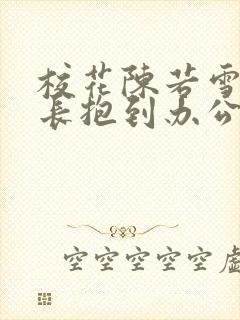 校花陳若雪
長抱到办公
空空空空空虛